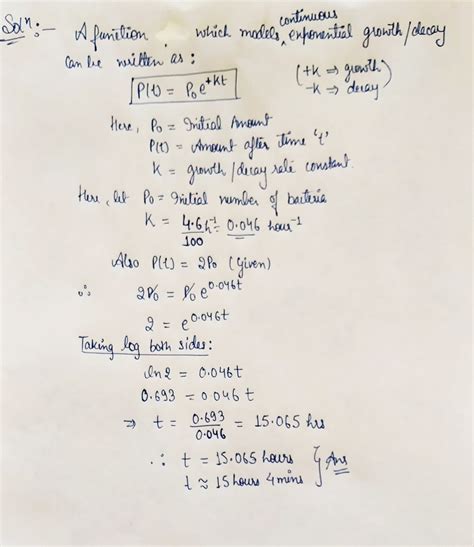 Solⁿ:- A function, which models continuous exponential growth/decay
can be written as:
P(t) = P₀e^{+Kt}
(+K ⇒ growth
-K ⇒ decay)
Here, P₀ = Initial Amount
P(t) = Amount after time 't'
K = growth/decay rate constant.
Here, let P₀ = Initial number of bacteria
K = 4.6/100 h⁻¹ = 0.046 hour⁻¹
Also P(t) = 2P₀ (Given)
∴ 2P₀ = P₀e^{0.046t}
2 = e^{0.046t}
Taking log both sides:
ln2 = 0.046t
0.693 = 0.046t
⇒ t = 0.693/0.046 = 15.065 hrs
∴ t = 15.065 hours } Ans
t ≈ 15 hours 4 mins